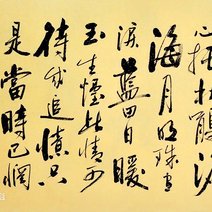 心托杜鵑滄
海月明珠有
淚藍田日暖
玉生煙此情可
待成追憶只
是當時已惘